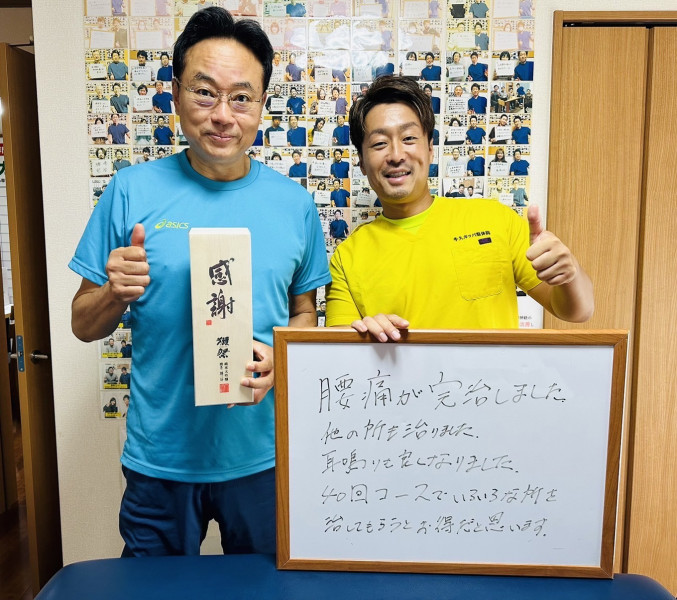 asics
牛久カッパ整体院
感謝
獺祭
腰痛が完治しました
他の所も治りました。
耳鳴りも良くなりました。
40回コースでいろいろな所を
治してもらうとお得だと思います。